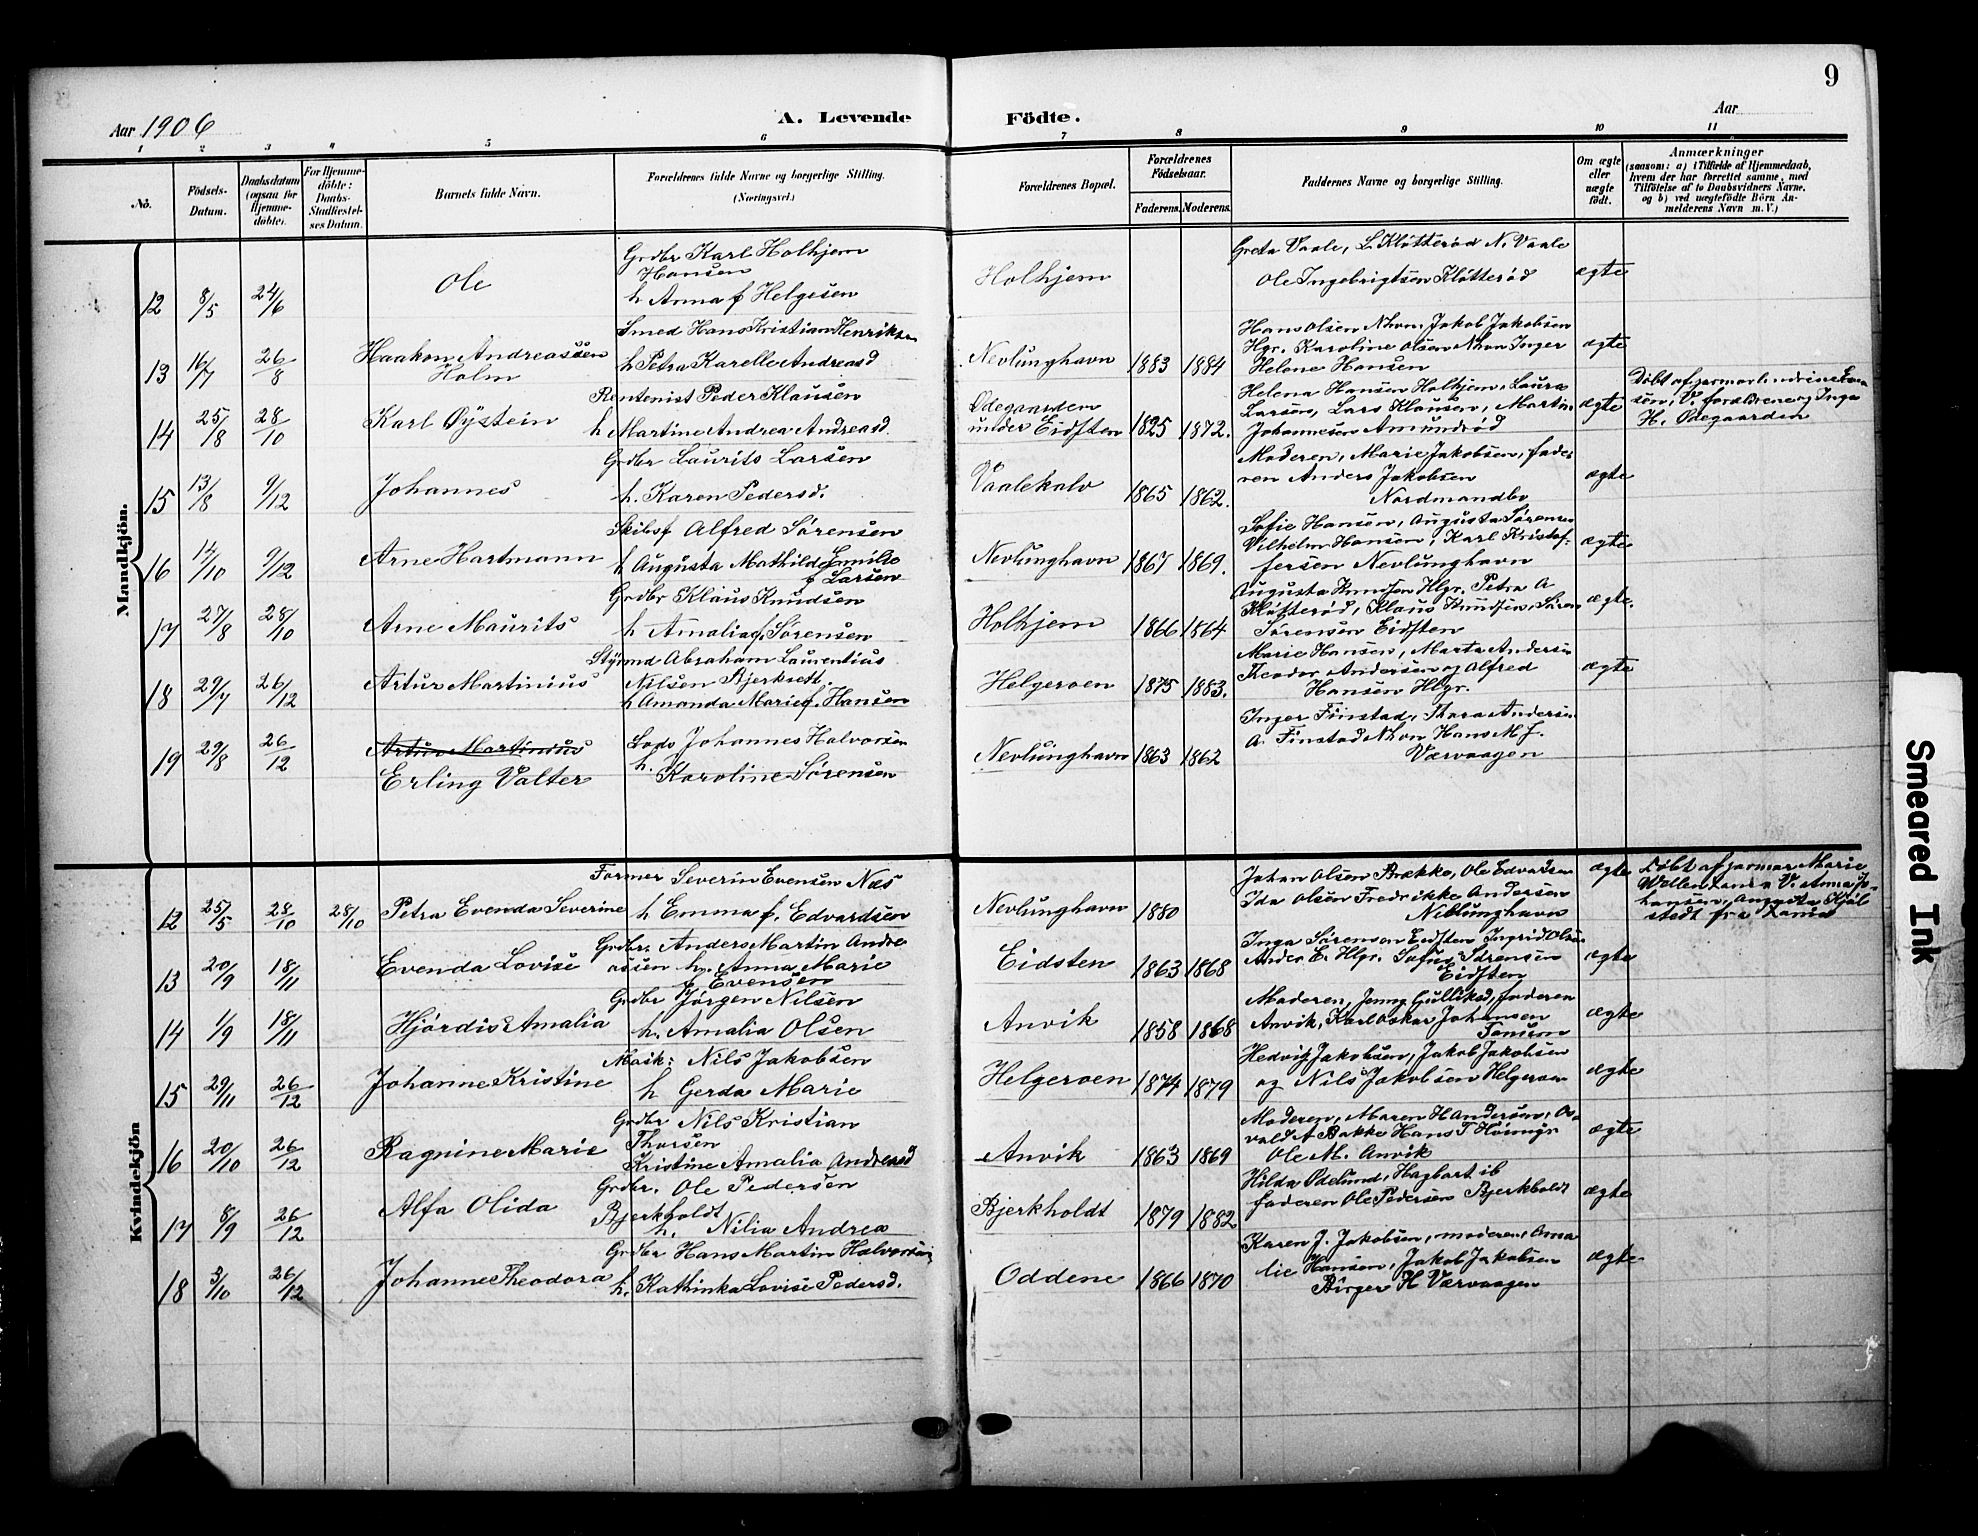 9
Aar 1906
A. Levende Födte.
Aar
1 2 3 4 5 6 7 8 9 10 11
No.
Födsels-Datum.
Daabsdatum (ogsaa for Hjemme-döbte).
For Hjemme-döbte: Daabs-Stadfæstel-ses Datum.
Barnets fulde Navn.
Forældrenes fulde Navne og borgerlige Stilling.
(Næringsvei.)
Forældrenes Bopæl.
Forældrenes Födselsaar.
Faderens. Moderens.
Faddernes Navne og borgerlige Stilling.
Om ægte eller uægte födt.
Anmærkninger
(saasom: a) i Tilfælde af Hjemmedaab,
hvem der har forrettet samme, med
Tilföielse af to Daabsvidners Navne,
og b) ved uægtefödte Börn An-
melderens Navn m. V.)
Mandkjön.
12 8/5 24/6 Ole
Grdbr Karl Holhjem
Hansen
h Anna f Helgesen
Holhjem
Greta Vaale, L. Kløtterød N. Vaale
Ole Ingebrigtsen Kløtterød
ægte
13 16/7 26/8 Haakon Andreassen
Holm
Smed Hans Kristian Henriksen
h Petra Karelle Andreasd
Nevlunghavn 1883 1884
Hans Olsen Nhvn. Jakob Jakobsen
Hgr. Karoline Olsen Nhvn Inger
Helene Hansen
ægte
14 25/8 28/10 Karl Øystein
Rentenist Peder Klausen
h Martine Andrea Andreasd.
Ødegaarden
under Eidsten 1825 1872.
Helena Hansen Holhjem, Laura
Larsen, Lars Klausen, Martin
Johannesen Amundrød
ægte
Døbt af jormor
sen, V. forældrene og Inga
H. Ødegaarden
15 13/8 9/12 Johannes
Grdbr Laurits Larsen
h. Karen Pedersd.
Vaalekalv 1865 1862.
Moderen, Marie Jakobsen, fade-
ren Anders Jakobsen
Nordmandbo
ægte
16 14/10 9/12 Arne Hartmann
Skibsf Alfred Sørensen
h Augusta Mathilde Emilie
f Larsen
Nevlunghavn 1867 1869.
Sofie Hansen, Augusta Sørensen
Vilhelm Hansen, Karl Kristof-
fersen Nevlunghavn
ægte
17 27/8 28/10 Arne Maurits
Grdbr Klaus Knudsen
h Amalia f. Sørensen
Holhjem 1866 1864
Augusta Knudsen Hlgr. Petra A
Kløtterød, Klaus Knudsen, Søren
Sørensen Eidsten
ægte.
18 29/7 26/12 Artur Martinius
Styrmd Abraham Laurentius
Nilsen Bjerksett.
h Amanda Marie f. Hansen
Helgeroen 1875 1883.
Marie Hansen, Marta Andersen
Teodor Andersen og Alfred
Hansen Hlgr.
ægte
19 29/8 26/12 Artur Martinius
Erling Valter
Lods Johannes Halvorsen
h. Karoline Sørensen
Nevlunghavn 1863 1862
Inger Finstad, Thora Andersen
A. Finstad Nhvn Hans M. J.
Værvaagen
Kvindekjön
12 25/5 28/10 28/10 Petra Evenda Severine
Former Severin Evensen Næs
h Emma f. Edvardsen
Nevlunghavn 1880
Johan Olsen Brække, Ole Edvardsen
Ida Olsen Fredrikke Andersen
Nevlunghavn
ægte
Døbt af jormor Marie
V. Anna Jo-
hansen, Augusta
stedt fra
13 20/9 18/11 Evenda Lovise
Grdbr. Anders Martin Andre
assen h. Anna Marie
f Evensen
Eidsten 1863 1868
Inga Sørensen Eidsten Ingrid Olsen
Ander E. Hlgr. Sofus Sørensen
Eidsten
ægte
14 1/9 18/11 Hjørdis Amalia
Grdbr Jørgen Nilsen
h. Amalia Olsen
Anvik 1858 1868
Moderen, Jenny Gulliksd, faderen
Anvik, Karl Oskar Johansen
ægte
15 29/11 26/12 Johanne Kristine
Mask: Nils Jakobsen
h Gerda Marie
Helgeroen 1874 1879
Hedvig Jakobsen, Jakob Jakobsen
og Nils Jakobsen Helgeroen
ægte
16 20/10 26/12 Ragnine Marie
Grdbr Nils Kristian
Thorsen
Kristine Amalia Andreasd
Anvik 1863 1869
Moderen, Maren H Andersen, Os-
vald A Bakke Hans T Høimyr
Ole M. Anvik
ægte
17 8/9 26/12 Alfa Olida
Grdbr. Ole Pedersen
Bjerkholdt
h. Nilia Andrea
Bjerkholdt 1879 1882
Hilda Ødelund, Hagbart ib
faderen Ole Pedersen Bjerkholdt
ægte
18 3/10 26/12 Johanne Theodora
Grdbr Hans Martin Halvorsen
h. Kathinka Lovise Pedersd.
Oddene 1866 1870
Karen J. Jakobsen, moderen, Ama
lie Hansen, Jakob Jakobsen
Birger H Værvaagen
ægte
Smeared Ink